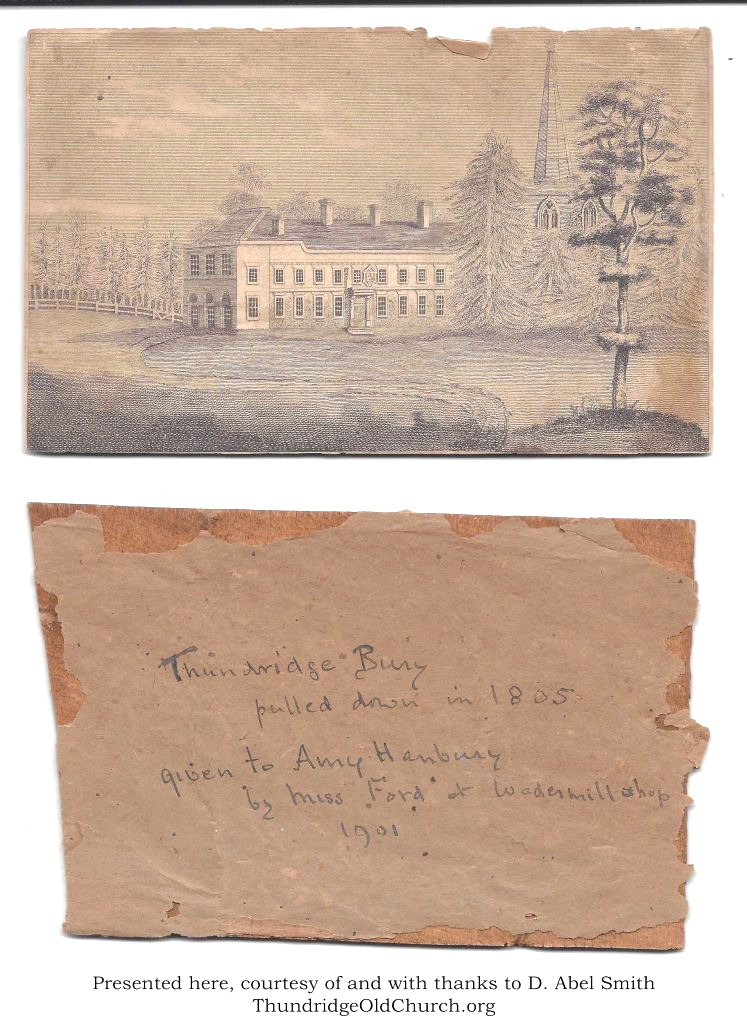 Thundridge Bury
pulled down in 1805
given to Amy Hanbury
by Miss Ford at Wadesmill shop
1901
Presented here, courtesy of and with thanks to D. Abel Smith
ThundridgeOldChurch.org